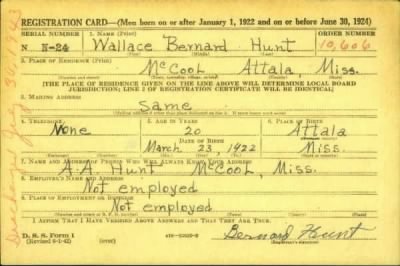 REGISTRATION CARD—(Men born on or after January 1, 1922 and on or before June 30, 1924)
SERIAL NUMBER 1. NAME (Print) ORDER NUMBER
N N-24 Wallace Bernard Hunt 10,606
2. PLACE OF RESIDENCE (Print)
McCool Attala, Miss.
[THE PLACE OF RESIDENCE GIVEN ON THE LINE ABOVE WILL DETERMINE LOCAL BOARD
JURISDICTION; LINE 2 OF REGISTRATION CERTIFICATE WILL BE IDENTICAL]
3. MAILING ADDRESS
Same
4. TELEPHONE 5. AGE IN YEARS 6. PLACE OF BIRTH
None 20 Attala
DATE OF BIRTH
March 23, 1922 Miss.
7. NAME AND ADDRESS OF PERSON WHO WILL ALWAYS KNOW YOUR ADDRESS
A.A. Hunt McCool, Miss.
8. EMPLOYER'S NAME AND ADDRESS
Not employed
9. PLACE OF EMPLOYMENT OR BUSINESS
Not employed
I AFFIRM THAT I HAVE VERIFIED ABOVE ANSWERS AND THAT THEY ARE TRUE.
D. S. S. Form 1
(Revised 6-1-42)
Bernard Hunt